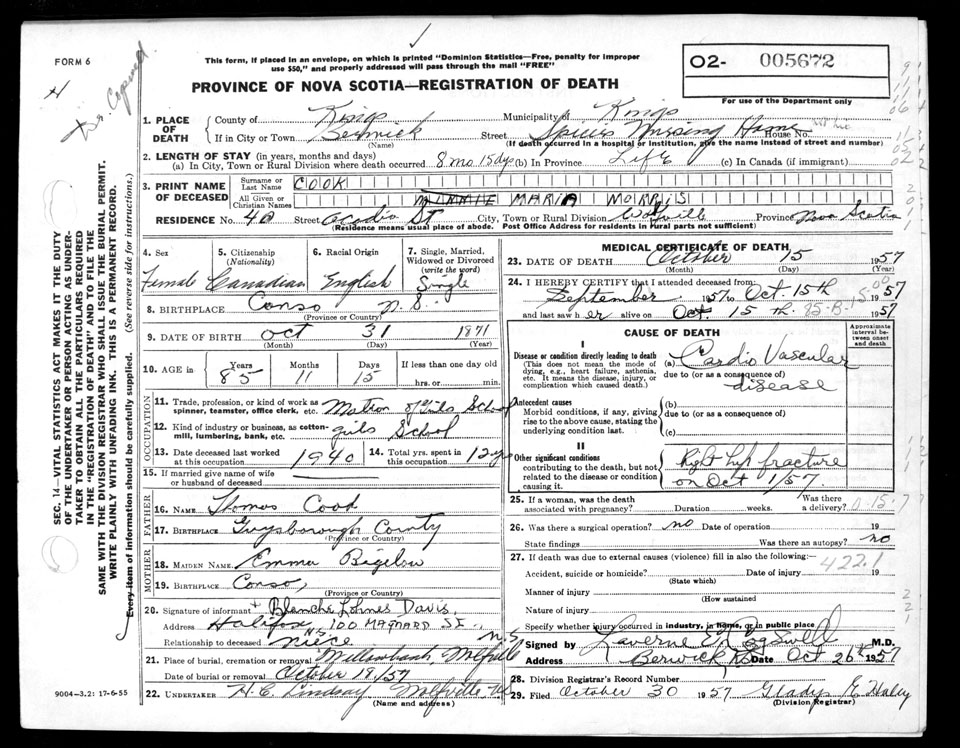 FORM 6
This form, if placed in an envelope, on which is printed "Dominion Statistics—Free, penalty for improper
use $50," and properly addressed will pass through the mail "FREE"
PROVINCE OF NOVA SCOTIA—REGISTRATION OF DEATH
O2- 005672
For use of the Department only
H
Copied
1. PLACE OF DEATH
County of Kings Municipality of Kings
If in City or Town Berwick Street Spicers Nursing Home House No.
(Name) (If death occurred in a hospital or institution, give the name instead of street and number)
2. LENGTH OF STAY (in years, months and days)
(a) In City, Town or Rural Division where death occurred 8 mo 15 dys (b) In Province Life (c) In Canada (if immigrant)
3. PRINT NAME OF DECEASED
Surname or Last Name COOK
All Given or Christian Names MINNIE MARIA MORRIS
RESIDENCE No. 40 Street Acadia St City, Town or Rural Division Wolfville Province Nova Scotia
(Residence means usual place of abode. Post Office Address for residents in rural parts not sufficient)
4. Sex 5. Citizenship (Nationality) 6. Racial Origin 7. Single, Married, Widowed or Divorced (write the word)
Female Canadian English Single
8. BIRTHPLACE Canso N.S.
(Province or Country)
9. DATE OF BIRTH Oct 31 1871
(Month) (Day) (Year)
10. AGE in Years 85 Months 11 Days 15 If less than one day old
hrs. or min.
OCCUPATION
11. Trade, profession, or kind of work as spinner, teamster, office clerk, etc. Matron of Girls School
12. Kind of industry or business, as cotton-mill, lumbering, bank, etc. girls School
13. Date deceased last worked at this occupation 1940 14. Total yrs. spent in this occupation 12 yrs
15. If married give name of wife or husband of deceased
FATHER
16. NAME Thomas Cook
17. BIRTHPLACE Guysborough County
(Province or Country)
MOTHER
18. MAIDEN NAME Emma Bigelow
19. BIRTHPLACE Canso,
(Province or Country)
20. Signature of informant + Blanche Lohnes Davis,
Address Halifax, N.S. 100 MAYNARD ST. N.S
Relationship to deceased niece
21. Place of burial, cremation or removal Willowbank Wolfville
Date of burial or removal October 19/57
22. UNDERTAKER H. C. Lindsay Wolfville, NS
(Name and address)
MEDICAL CERTIFICATE OF DEATH
23. DATE OF DEATH October 15 1957
(Month) (Day) (Year)
24. I HEREBY CERTIFY that I attended deceased from:
September 1957 to Oct. 15th 1957
and last saw her alive on Oct. 15th. 1957
CAUSE OF DEATH
Approximate interval between onset and death
I
Disease or condition directly leading to death
(This does not mean the mode of dying, e.g., heart failure, asthenia, etc. It means the disease, injury, or complication which caused death.)
(a) Cardio Vascular
due to (or as a consequence of)
disease
Antecedent causes
Morbid conditions, if any, giving rise to the above cause, stating the underlying condition last.
(b)
due to (or as a consequence of)
(c)
II
Other significant conditions
contributing to the death, but not related to the disease or condition causing it.
Right hip fracture
on Oct 1/57
25. If a woman, was the death associated with pregnancy? Duration weeks. Was there a delivery?
26. Was there a surgical operation? no Date of operation 19
State findings Was there an autopsy? no
27. If death was due to external causes (violence) fill in also the following:- 422.1
Accident, suicide or homicide? Date of injury 19
(State which)
Manner of injury
(How sustained
Nature of injury
Specify whether injury occurred in industry, in home, or in public place
Signed by Laverne E. Cogswell M.D.
Address Berwick NS Date Oct 26th 1957
28. Division Registrar's Record Number
29. Filed October 30 1957 Gladys E. Haley
(Division Registrar)
SEC. 14—VITAL STATISTICS ACT MAKES IT THE DUTY
OF THE UNDERTAKER OR PERSON ACTING AS UNDER-
TAKER TO OBTAIN ALL THE PARTICULARS REQUIRED
IN THE "REGISTRATION OF DEATH" AND TO FILE THE
SAME WITH THE DIVISION REGISTRAR WHO SHALL ISSUE THE BURIAL PERMIT.
WRITE PLAINLY WITH UNFADING INK. THIS IS A PERMANENT RECORD.
Every item of information should be carefully supplied. (See reverse side for instructions.)
9004—3.2: 17-6-55